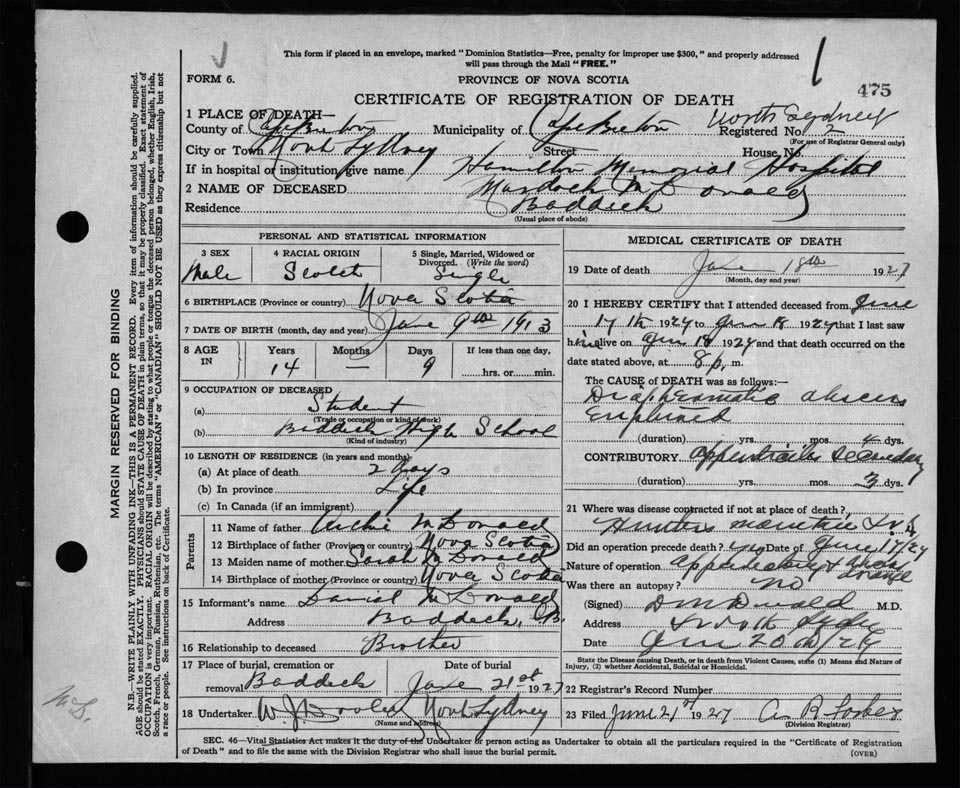 This form if placed in an envelope, marked "Dominion Statistics—Free, penalty for improper use $300," and properly addressed
will pass through the Mail "FREE."
1
FORM 6.
PROVINCE OF NOVA SCOTIA
475
CERTIFICATE OF REGISTRATION OF DEATH
1 PLACE OF DEATH—
North Sydney
County of Cape Breton Municipality of Cape Breton Registered No. 2
(For use of Registrar General only)
City or Town North Sydney Street House No.
If in hospital or institution, give name Hamilton Memorial Hospital
2 NAME OF DECEASED Murdock McDonald
Residence Baddeck
(Usual place of abode)
PERSONAL AND STATISTICAL INFORMATION
3 SEX
Male
4 RACIAL ORIGIN
Scotch
5 Single, Married, Widowed or
Divorced. (Write the word)
Single
6 BIRTHPLACE (Province or country) Nova Scotia
7 DATE OF BIRTH (month, day and year) June 9th 1913
8 AGE IN
Years Months Days If less than one day,
14 — 9 hrs. or min.
9 OCCUPATION OF DECEASED
(a) Student
(Trade or occupation or kind of work)
(b) Baddeck High School
(Kind of industry)
10 LENGTH OF RESIDENCE (in years and months)
(a) At place of death 2 Days
(b) In province Life
(c) In Canada (if an immigrant)
Parents
11 Name of father Archie McDonald
12 Birthplace of father (Province or country) Nova Scotia
13 Maiden name of mother Sarah McDonald
14 Birthplace of mother (Province or country) Nova Scotia
15 Informant's name Daniel McDonald
Address Baddeck, C.B.
16 Relationship to deceased Brother
17 Place of burial, cremation or
removal Baddeck
Date of burial
June 21st 1927
18 Undertaker W. J. Dooley North Sydney
(Name and address)
MEDICAL CERTIFICATE OF DEATH
19 Date of death June 18th 1927
(Month, day and year)
20 I HEREBY CERTIFY that I attended deceased from June
17th 1927 to June 18 1927 that I last saw
him alive on June 18 1927 and that death occurred on the
date stated above, at 8 p. m.
The CAUSE of DEATH was as follows:—
abscess
(duration) yrs. mos. 4 dys.
CONTRIBUTORY Appendicitis Secondary
(duration) yrs. mos. 3 dys.
21 Where was disease contracted if not at place of death?
Hunters Mountain
Did an operation precede death? yes Date of June 17/27
Nature of operation Appendectomy &
Was there an autopsy? No
(Signed) D McDonald M.D.
Address North Sydney
Date June 20th/27
State the Disease causing Death, or in death from Violent Causes, state (1) Means and Nature of
Injury, (2) whether Accidental, Suicidal or Homicidal.
22 Registrar's Record Number
23 Filed June 21st 1927 A R Forbes
(Division Registrar)
SEC. 46—Vital Statistics Act makes it the duty of the Undertaker or person acting as Undertaker to obtain all the particulars required in the "Certificate of Registration
of Death" and to file the same with the Division Registrar who shall issue the burial permit.
(OVER)
MARGIN RESERVED FOR BINDING
N.B.—WRITE PLAINLY WITH UNFADING INK—THIS IS A PERMANENT RECORD. Every item of information should be carefully supplied.
AGE should be stated EXACTLY. PHYSICIANS should STATE CAUSE OF DEATH in plain terms, so that it may be properly classified. Exact statement of
OCCUPATION is very important. RACIAL ORIGIN will be described by stating to what people or tongue the deceased person belonged, whether English, Irish,
Scotch, French, German, Russian, Ruthenian, etc. The terms "AMERICAN" or "CANADIAN" SHOULD NOT BE USED as they express citizenship but not
a race or people. See instructions on back of Certificate.